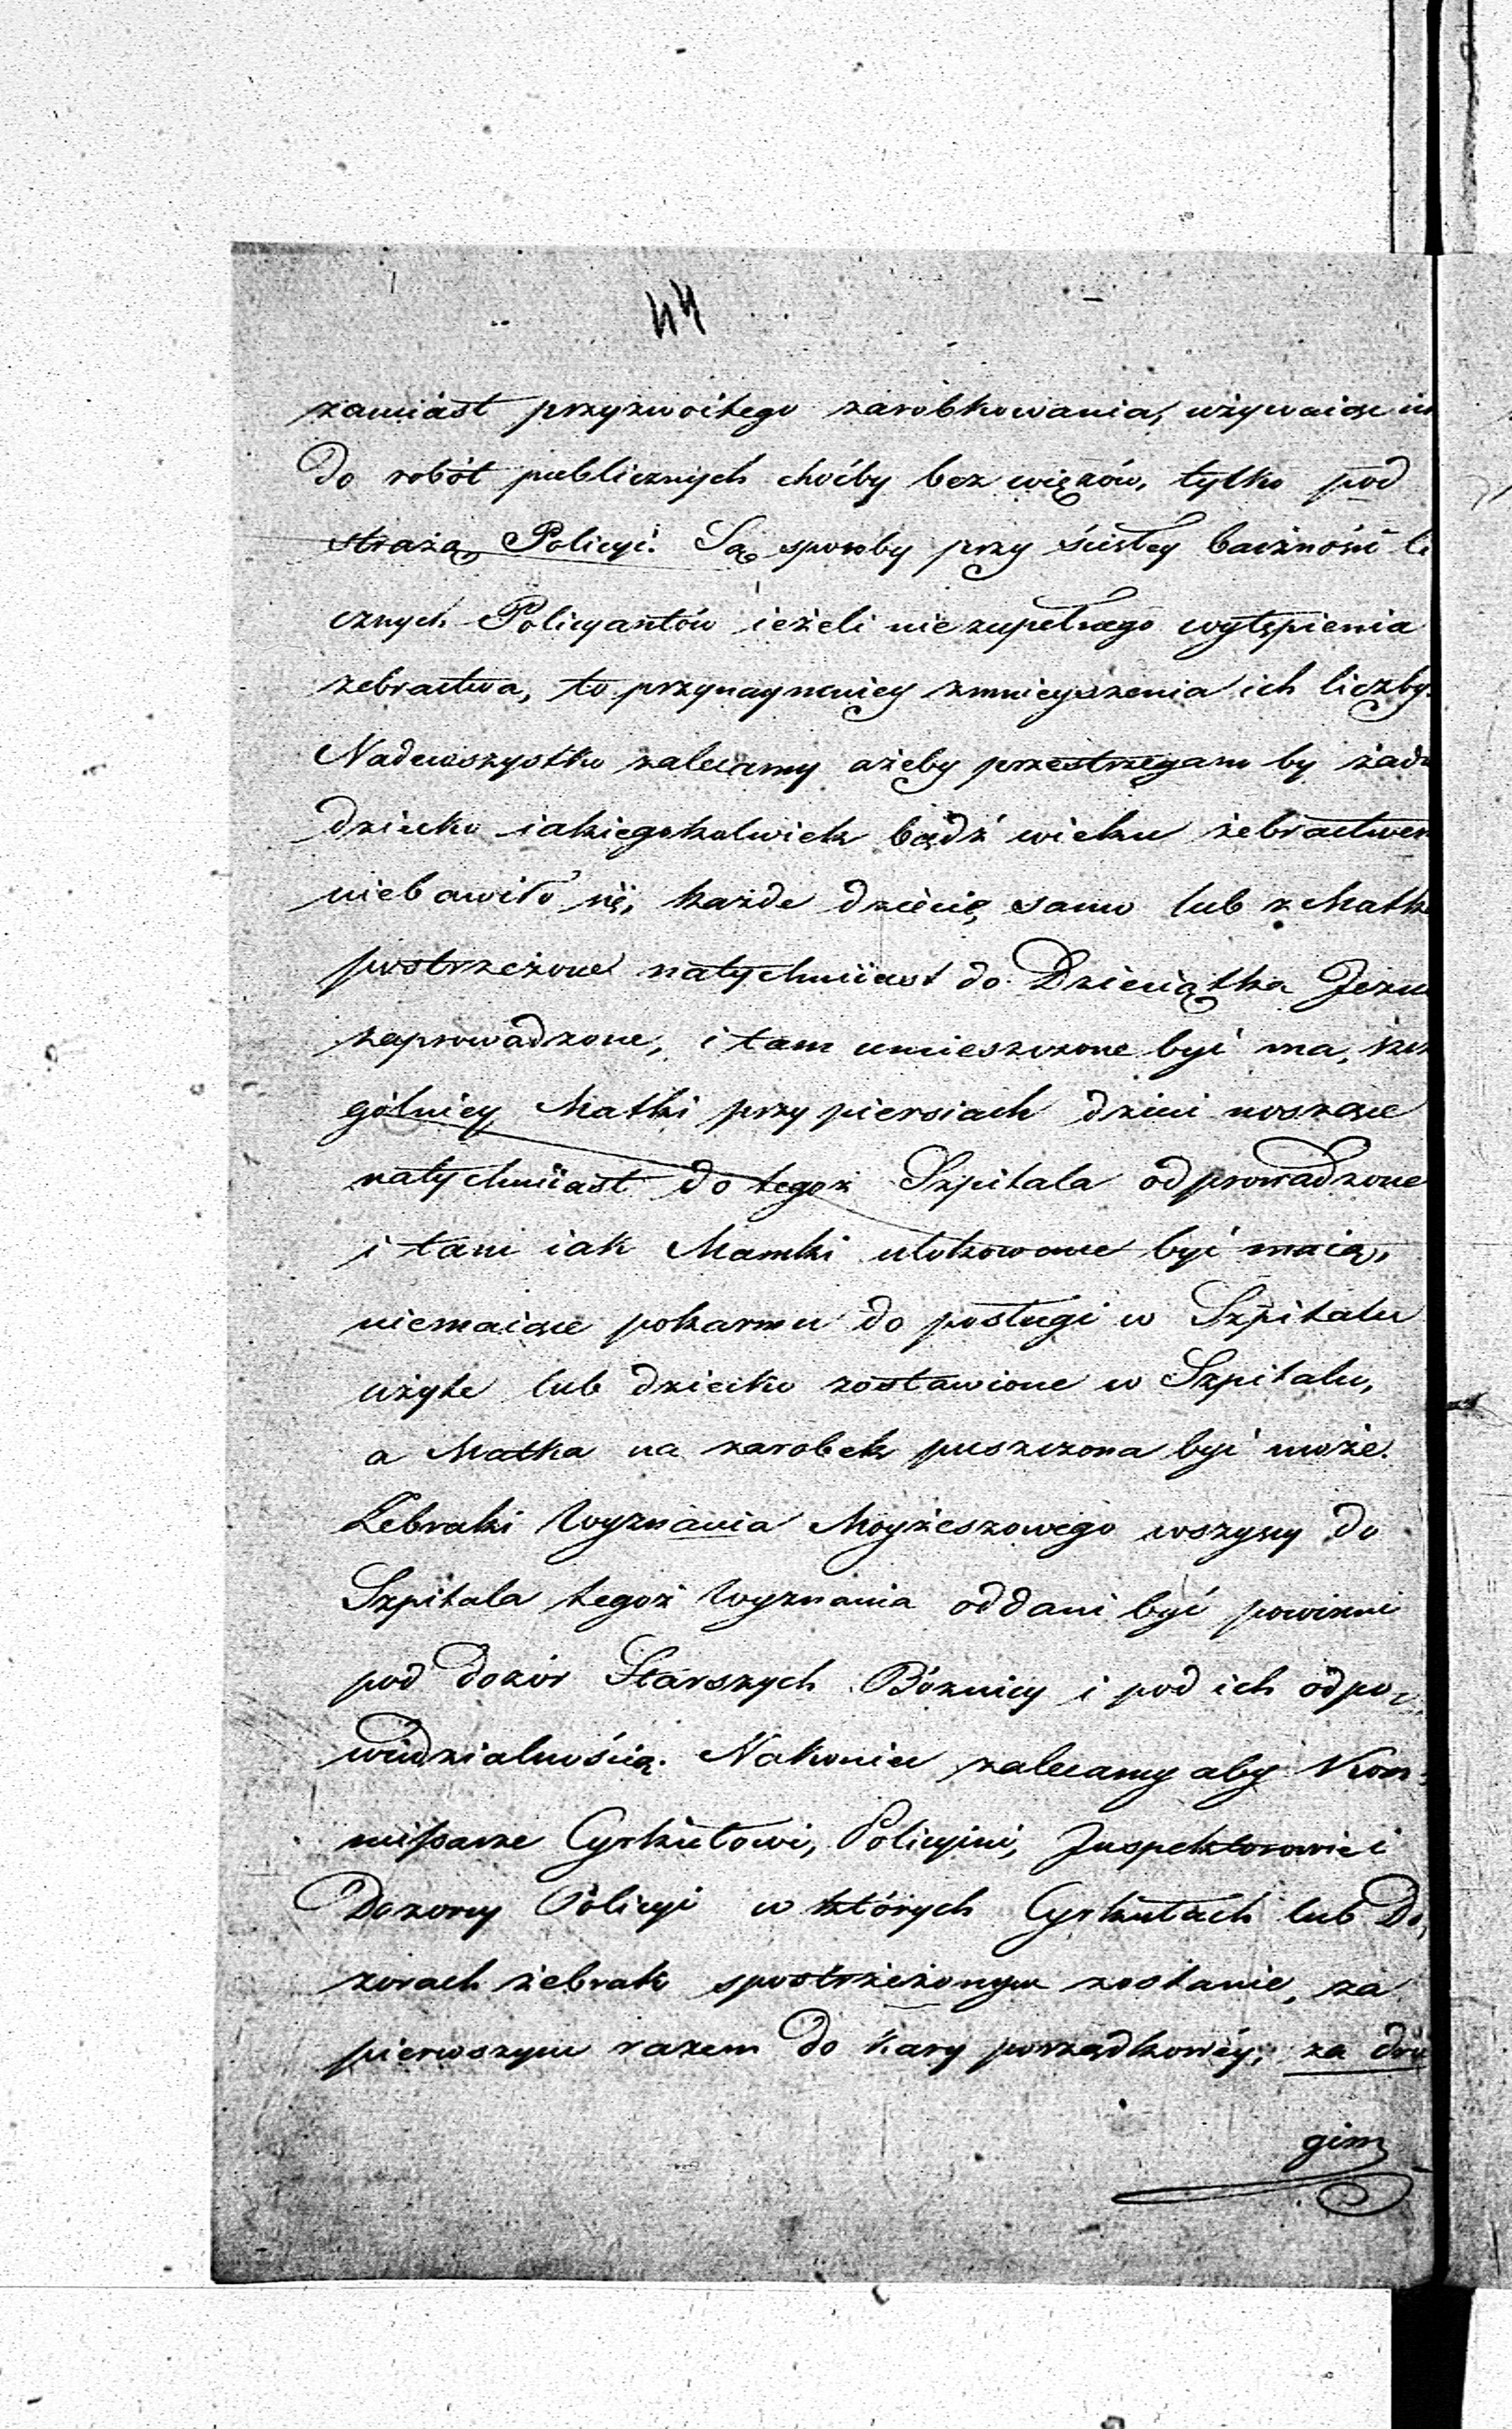 44
zamiast przyzwoitego zarobkowania, używaiąc ich
do robót publicznych choćby bez więzów, tylko pod
strażą Policyi. Są sposoby przy ścisłey baczność li
cznych Policyantów ieżeli nie zupełnego wytępienia
żebractwa, to przynaymniey zmnieyszenia ich liczby.
Nadewszystko zalecamy ażeby przestrzegano by żadn
dziecko iakiegokolwiek bądź wieku żebractwem
niebawiło się, każde dziecię samo lub z Matką
postrzeżone natychmiast do Dzieciątka Jezu
zaprowadzone, i tam umieszczone być ma, szcze
gólniey Matki przy piersiach dzieci noszące
natychmiast do tegoż Szpitala odprowadzone
i tam iak Mamki ulokowane być maią,
niemaiące pokarmu do posługi w Szpitalu
użyte lub dziecko zostawione w Szpitalu,
a Matka na zarobek puszczona być może.
Żebraki Wyznania Moyżeszowego wszyscy do
Szpitala tegoż Wyznania oddani być powinni
pod dozór Starszych Bóżnicy i pod ich odpo-
wiedzialnością. Nakoniec zalecamy aby Kom-
missarze Cyrkułowi, Policyini, Inspektorowie i
Dozorcy Policyi w których Cyrkułach lub Do
zorach żebrak spostrzeżonym zostanie, za
pierwszym razem do kary porządkowéy, za dru
gim